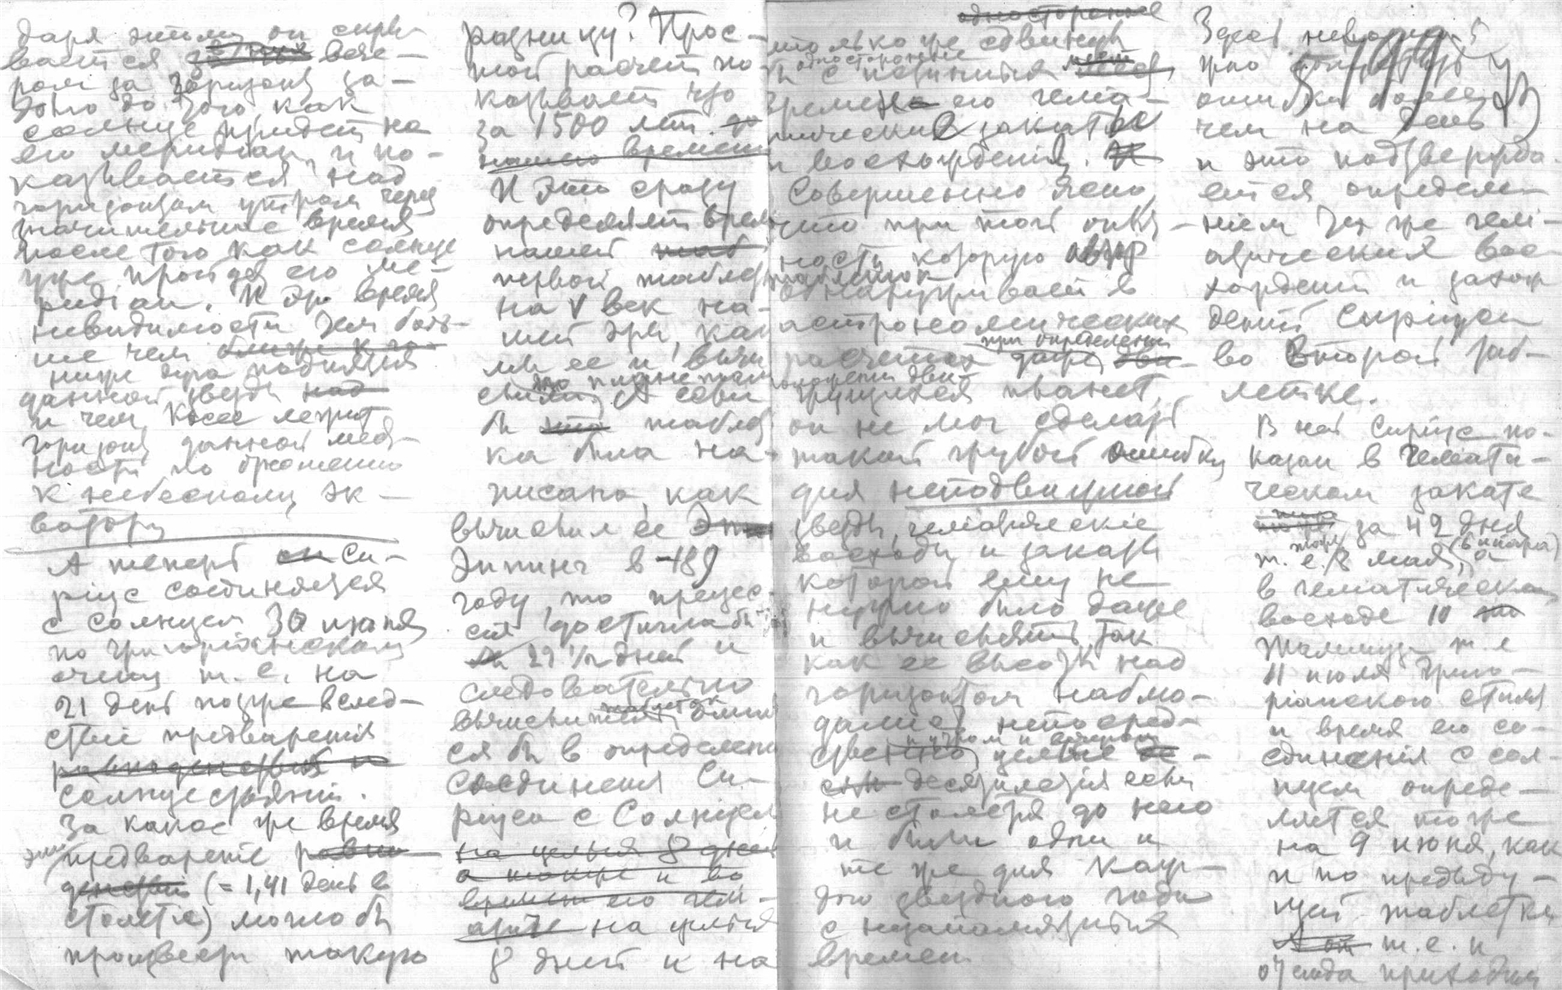 даря этому он скры-
вается вече-
ром за горизонт за-
долго до того как
солнце придет на
его меридиан и по-
казывается над
горизонтом утром через
значительное время
после того как солнце
уже пройдет его ме-
ридиан. И это время
невидимости тем боль-
ше чем
ниже дуга поднятия
данной звезды над
и чем косее лежит
горизонт данной мест-
ности по отношению
к небесному эк-
ватору
А теперь он Си-
ріус соединяется
с солнцем 30 июня
по григорианскому
счету т. е. на
21 день позже вслед-
ствие предварения
равноденствий и
солнцестояний.
За какое же время
это предварение равно-
денствий (= 1,41 день в
столетие) могло бы
произвести такую
разницу? Прос-
той расчет по-
казывает что
за 1500 лет. до
нашего времени
И это сразу
определяет время
нашей
первой таблетки
на V век на-
шей эры, как
мы ее и вычи
слили А если
бы эта таблет
ка была на-
писана, как
вычислил ее
Эппинг в -189
году, то прецес-
сия достигла бы
29 1/2 дней и
следовательно
вычислитель таблеток ошиб
ся бы в определении
соединения Си-
ріуса с Солнцем
на целыя 8 дней
а также и во
времени его гели-
на целыя
8 дней и на
одностороннее
столько же сдвинул
бы с истинных
одностороннее
времена его гелиа-
ческий закатов
и восхождений. И
Совершенно ясно,
что при той точ-
ности которую автор
таблеток
обнаруживает в
астрономических
расчетах при определении
движущихся планет,
он не мог сделать
такой грубой ошибки
для неподвижной
звезды, гелиаческие
восходы и закаты
которой ему не
нужно было даже
и вычислять, так
как ее высоты над
горизонтом наблю-
дались непосред-
ственно целые
десятилетия если
не столетия до него
и были одни и
те же для каж-
дого звездного года
с незапамятных
времен
Здесь невозможно
199
ошибки более
чем на день
и это подтвержда-
ется определе-
нием тех же гели-
ацических вос-
хождений и захож
дений Сириуса
во второй таб-
летке.
В ней Сириус по-
казан в гелиати-
ческом закате
за 42 дня
т. е. 8 мая, а
в гелиатическом
восходе 10
Таммуца т. е
11 июля григо-
рианского стиля
и время его со-
единения с сол-
нцем опреде-
ляется тоже
на 9 июня, как
и по предыду-
щей таблетке
т. е. и
отсюда приходим